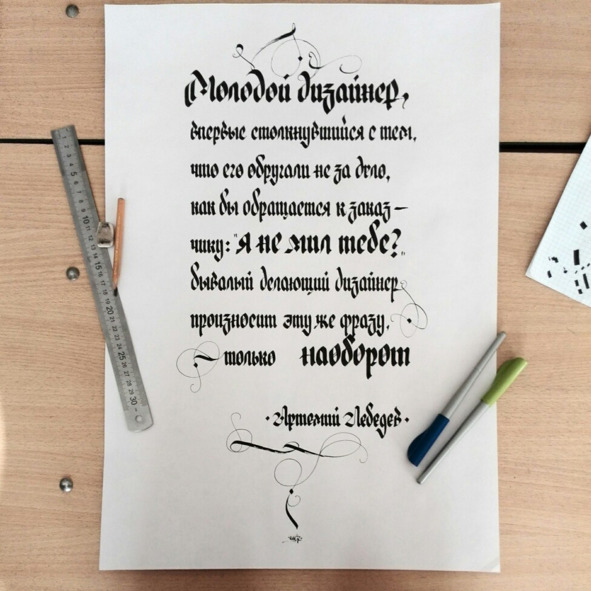 Молодой дизайнер,
впервые столкнувшийся с тем,
что его обругали не за дело,
как бы обращается к заказ—
чику: "я не мил тебе?"
бывалый делающий дизайнер
произносит эту же фразу,
~ только наоборот
· Артемий Лебедев ·
5 10 15 20 25 30